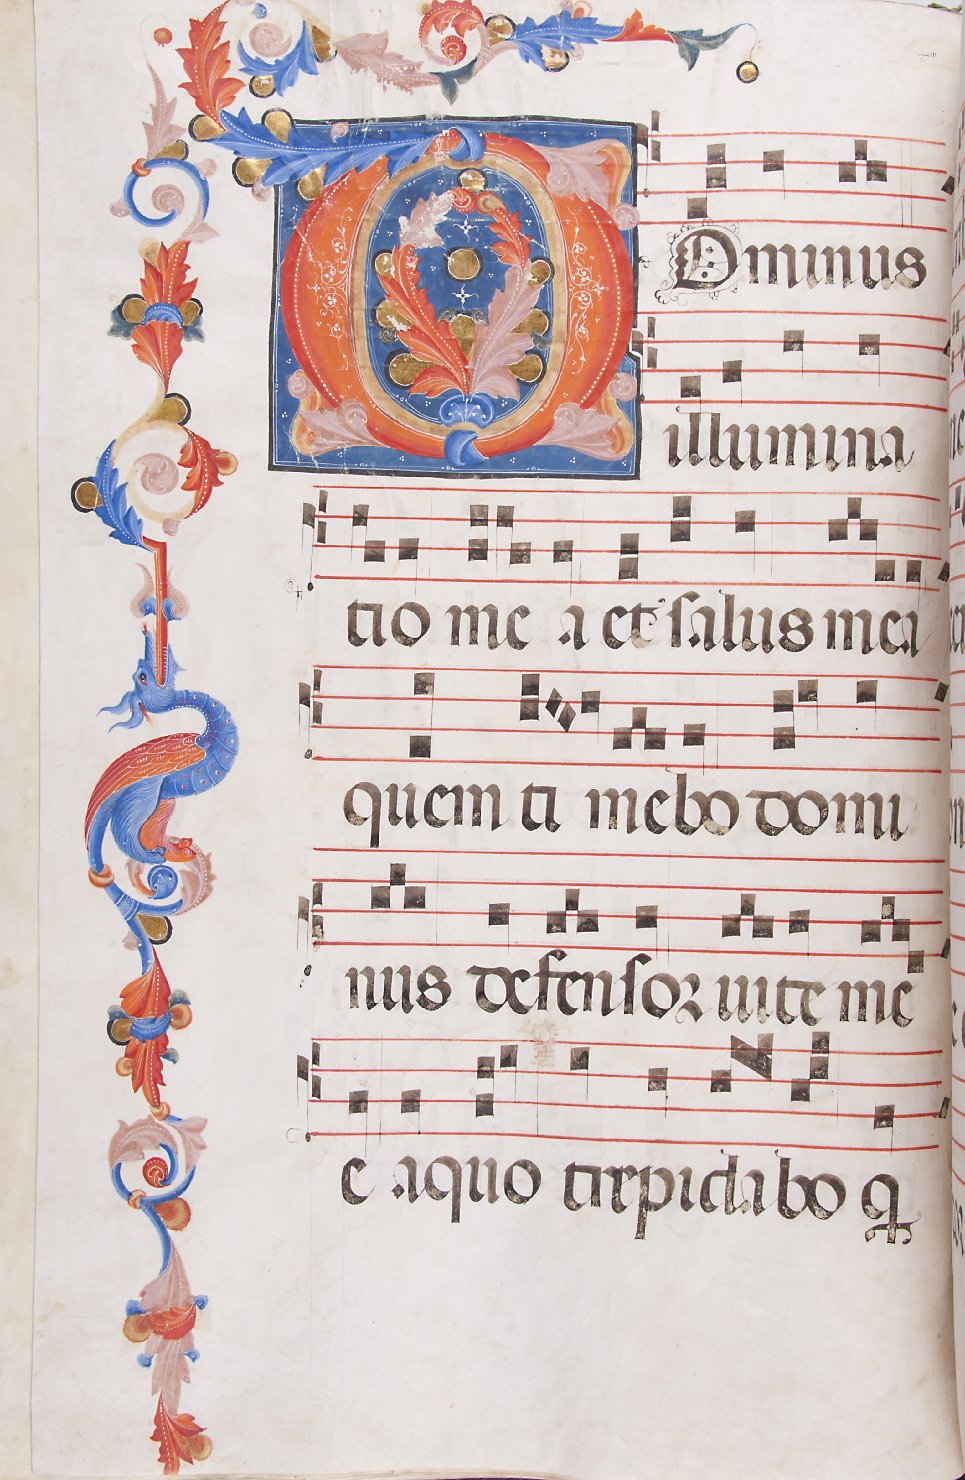 Dominus
illumina
tio me a et salus mea
quem ti mebo domi
nus defensor uite me
e aquo trepidabo q